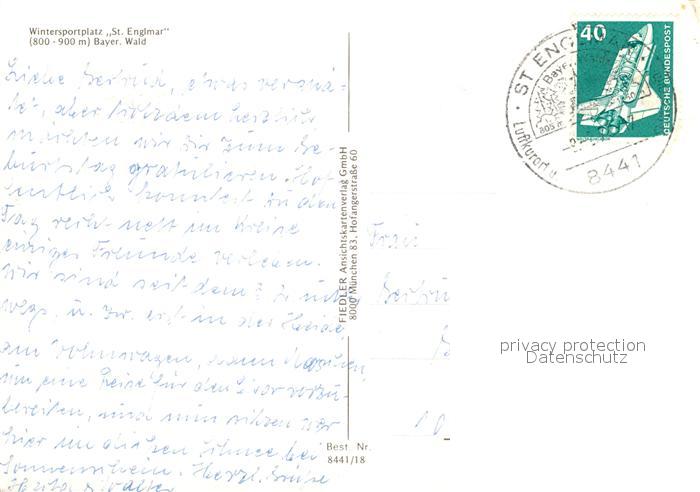 Wintersportplatz „St. Englmar"
(800 - 900 m) Bayer. Wald
Liebe Gertrud, etwas verspä-
tet, aber trotzdem herzlich
möchten wir Dir zum Ge-
burtstag gratulieren. Hof-
fentlich konntest Du den
Tag recht nett im Kreise
einiger Freunde verleben.
Wir sind seit dem
wegs, u. zw. erst in der Heide
am Wohnwagen, dann
um eine Reise für den vorzu-
bereiten, und nun sitzen wir
hier im dicken Schnee bei
Sonnenschein. Herzl. Grüße
Walter
FIEDLER Ansichtskartenverlag GmbH
8000 München 83, Hofangerstraße 60
Best. Nr.
8441/18
40
DEUTSCHE BUNDESPOST
ST ENGLMAR
Bayer.
805 m
Luftkurort u
8441
Frau
Gertru
10
privacy protection
Datenschutz